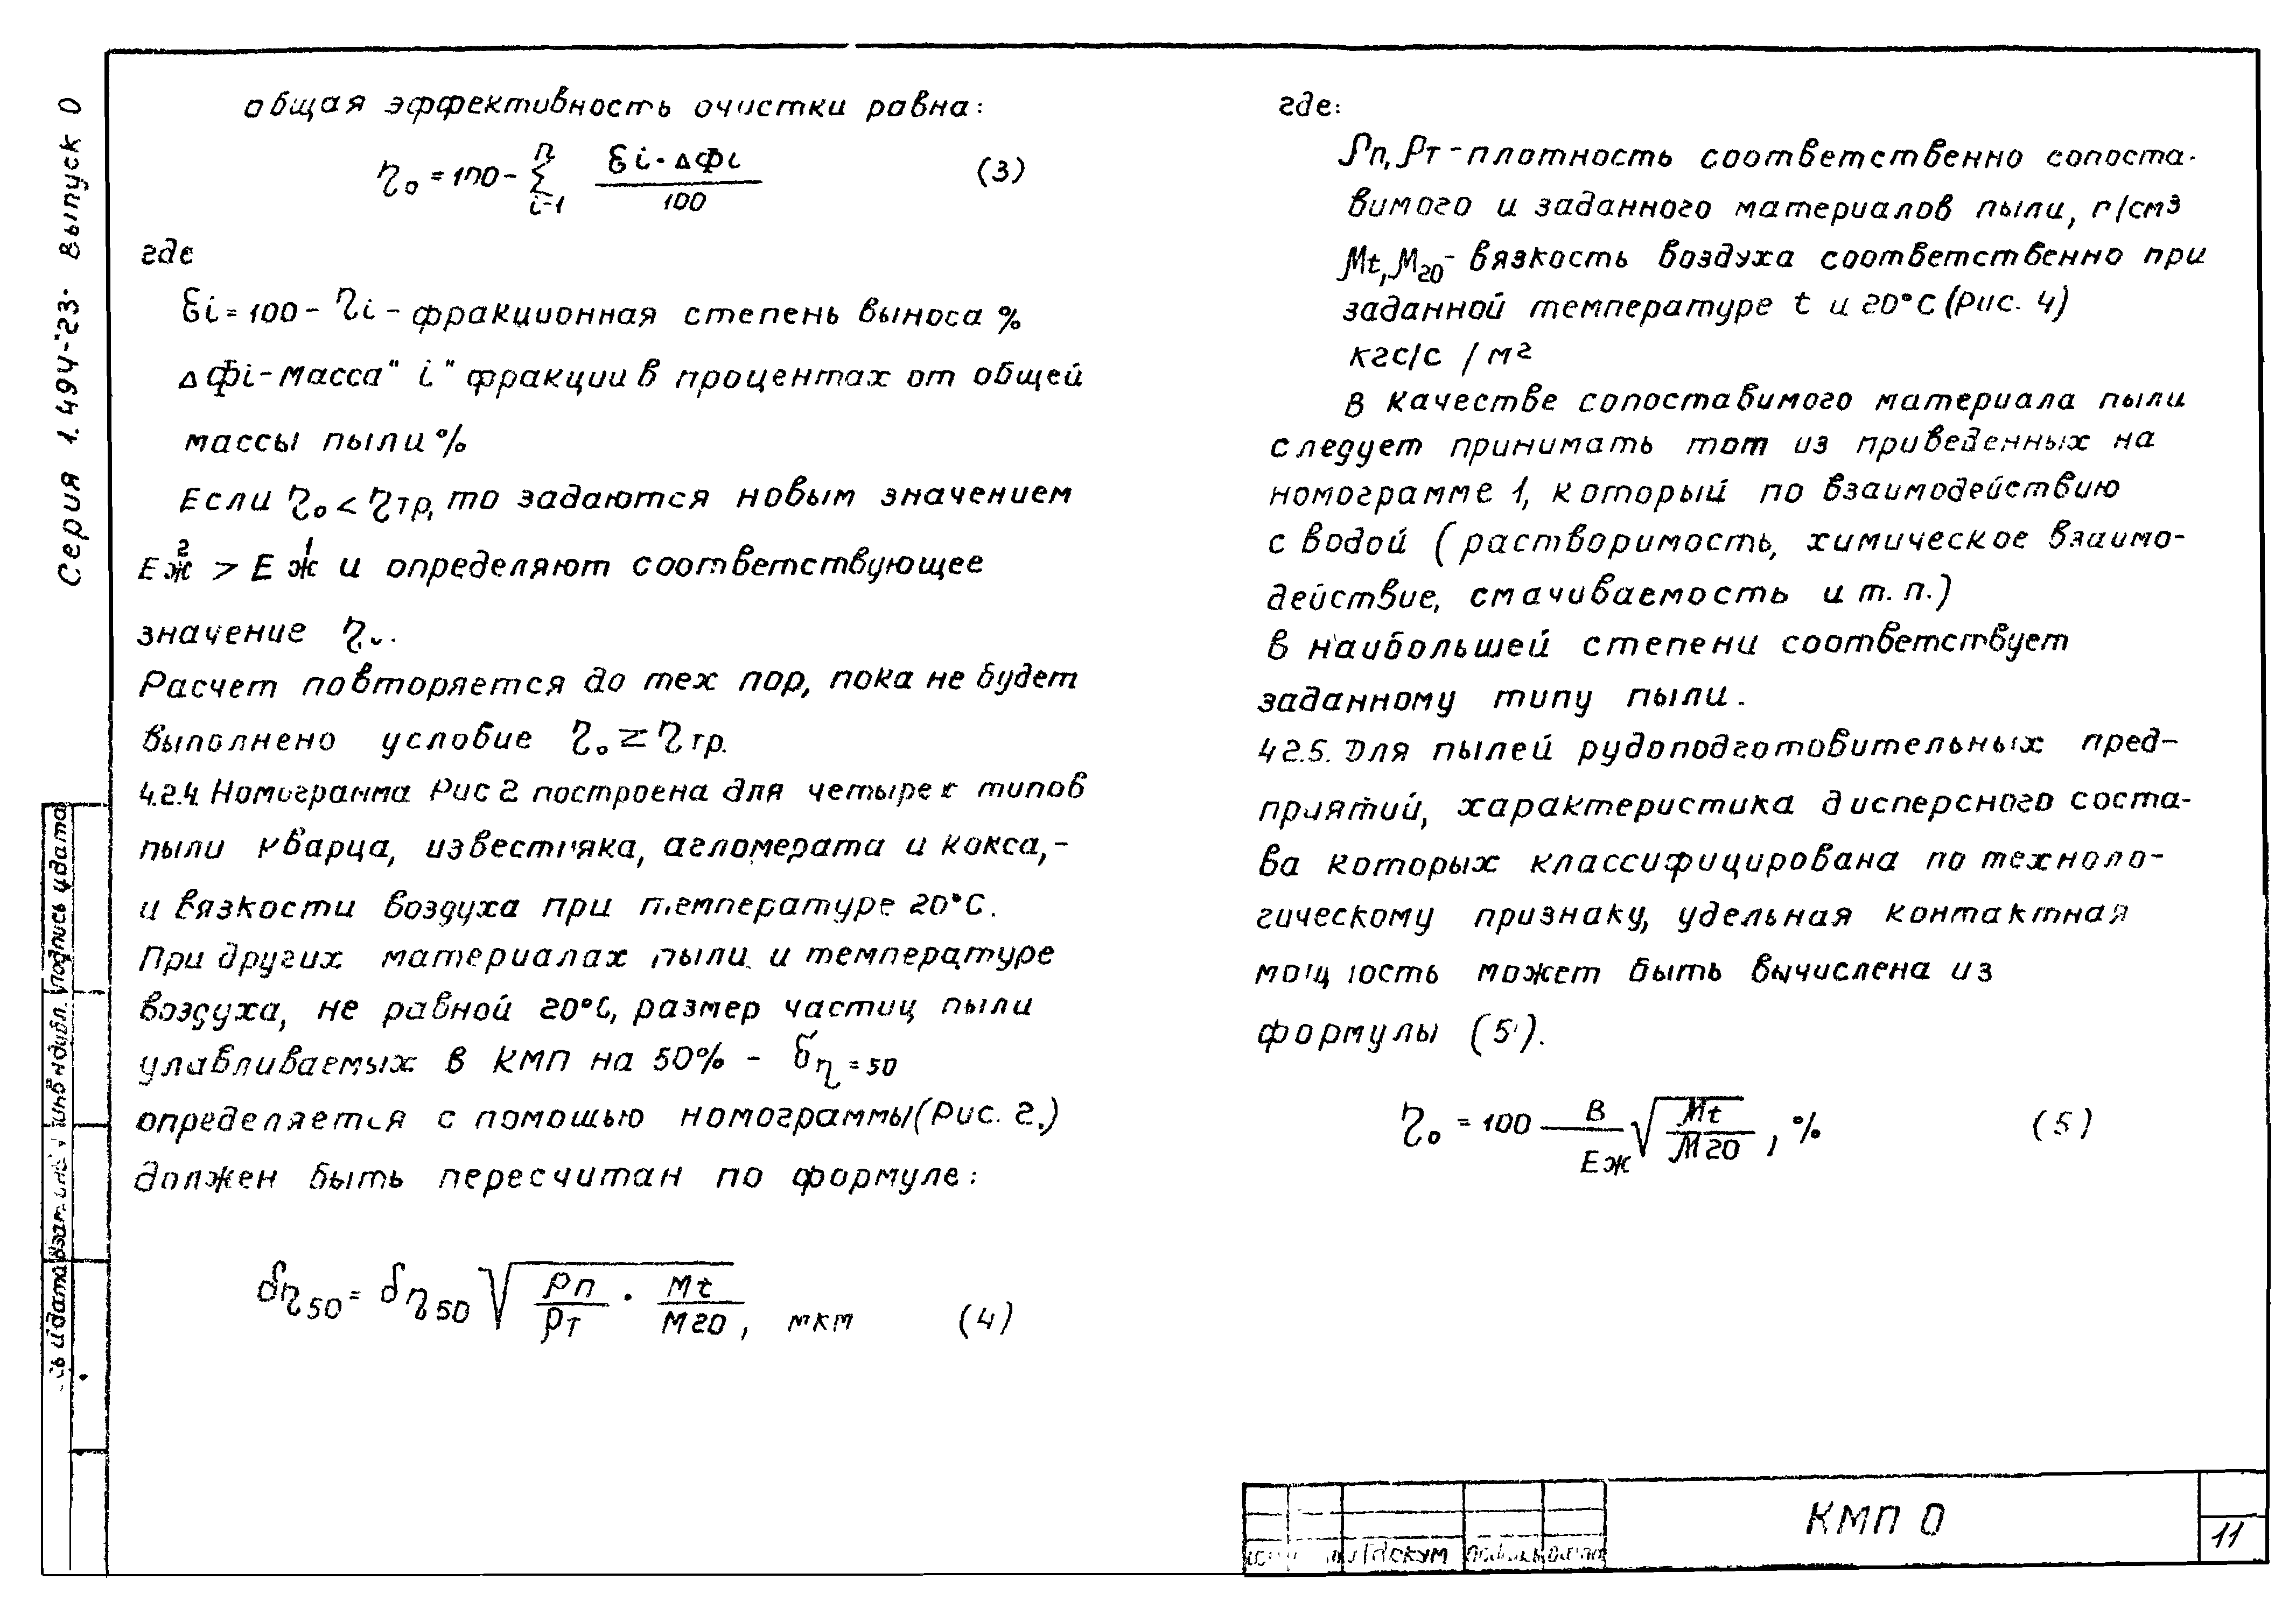 Серия 1.494-23. Выпуск 0
общая эффективность очистки равна:
η₀ = 100 - Σ (i=1, n) εi · ΔФi / 100 (3)
где
εi = 100 - ηi - фракционная степень выноса %
ΔФi - масса "i" фракции в процентах от общей
массы пыли %
Если η₀ < ηтр, то задаются новым значением
Eж² > Eж¹ и определяют соответствующее
значение η₀.
Расчет повторяется до тех пор, пока не будет
выполнено условие η₀ ≥ ηтр.
4.2.4. Номограмма Рис 2 построена для четырех типов
пыли кварца, известняка, агломерата и кокса, -
и вязкости воздуха при температуре 20°С.
При других материалах пыли и температуре
воздуха, не равной 20°С, размер частиц пыли
улавливаемых в КМП на 50% - δη=50
определяется с помощью номограммы (Рис. 2.)
должен быть пересчитан по формуле:
δη50 = δη50 √(ρп/ρт · Mt/M20), мкм (4)
где:
ρп, ρт - плотность соответственно сопоста-
вимого и заданного материалов пыли, г/см3
Mt, M20 - вязкость воздуха соответственно при
заданной температуре t и 20°С (Рис. 4)
кгс/с /м2
В качестве сопоставимого материала пыли
следует принимать тот из приведенных на
номограмме 1, который по взаимодействию
с водой (растворимость, химическое взаимо-
действие, смачиваемость и т. п.)
в наибольшей степени соответствует
заданному типу пыли.
4 2.5. Для пылей рудоподготовительных пред-
приятий, характеристика дисперсного соста-
ва которых классифицирована по техноло-
гическому признаку, удельная контактная
мощность может быть вычислена из
формулы (5).
η₀ = 100 B/Eж √(Mt/M20), % (5)
КМП 0
11
докум
подпись и дата